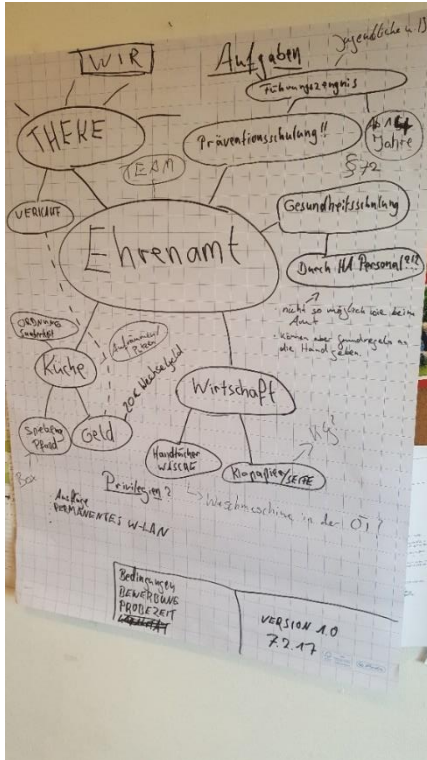 WIR
Aufgaben
Jugendliche
Führungszeugnis
Ab 14
Jahre
THEKE
Präventionsschulung!!
§72
TEAM
VERKAUF
Gesundheitsschulung
Ehrenamt
Durch HA Personal?!?
nicht so möglich wie beim
Amt
können aber grundregeln an
die Hand geben.
ORDNUNG
Sauberkeit
Aufräumen/
Putzen
Küche
20€ Wechselgeld
Wirtschaft
Pfand
Geld
Handtücher
WÄSCHE
Klopapier/SEIFE
Privilegien?
Waschmaschine in der OT?
Ausflüge
PERMANENTES W-LAN
Bedingungen
BEWERBUNG
PROBEZEIT
VERSION 1.0
7.2.17